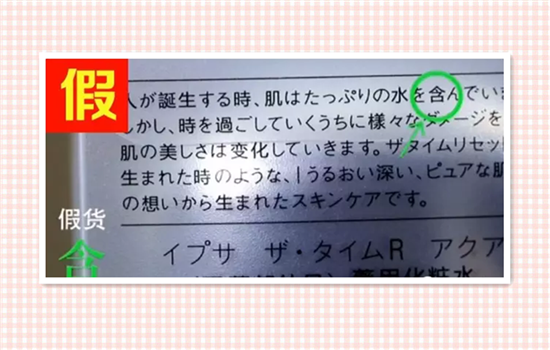 假
人が誕生する時、肌はたっぷりの水を含んでいま
しかし、時を過ごしていくうちに様々なダメージを
肌の美しさは変化していきます。ザタイムリセッ
生まれた時のような、|うるおい深い、ピュアな肌
の想いから生まれたスキンケアです。
假货
含
イプサ ザ・タイムR アクア
薬用化粧水